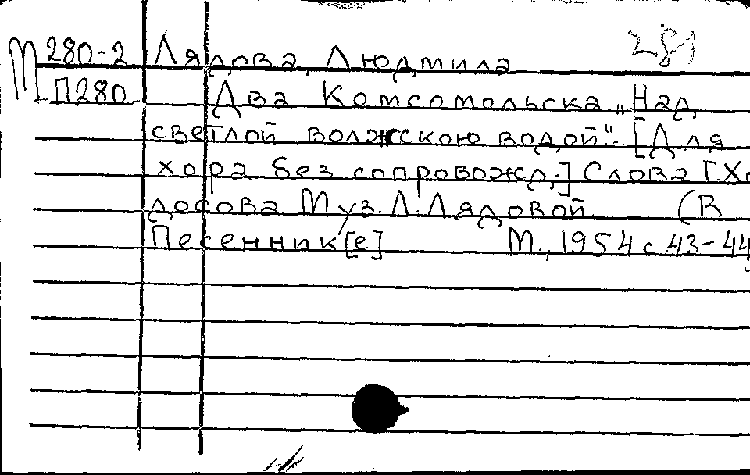 М 280-2 Лядова, Людмила 281
П280 Два Комсомольска „Над
светлой волжскою водой". [Для
хора без сопровожд.] Слова Г. Хо
досова Муз Л. Лядовой (В
Песенник[е] М., 1954 с 43-44